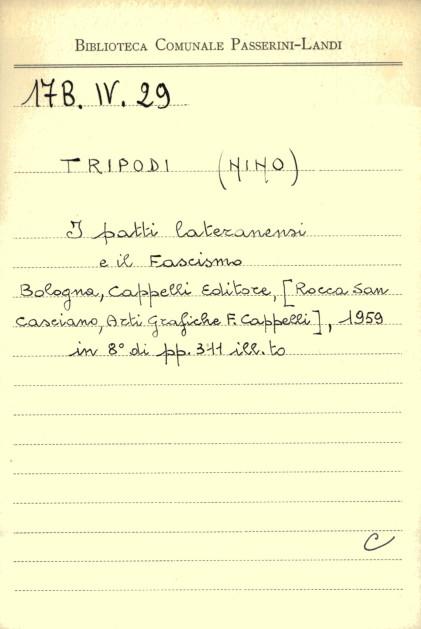 BIBLIOTECA COMUNALE PASSERINI-LANDI
17B. IV. 29
TRIPODI (NINO)
I patti lateranensi
e il Fascismo
Bologna, Cappelli Editore, [Rocca San
Casciano, Arti Grafiche F. Cappelli], 1959
in 8° di pp. 311 ill.to
C